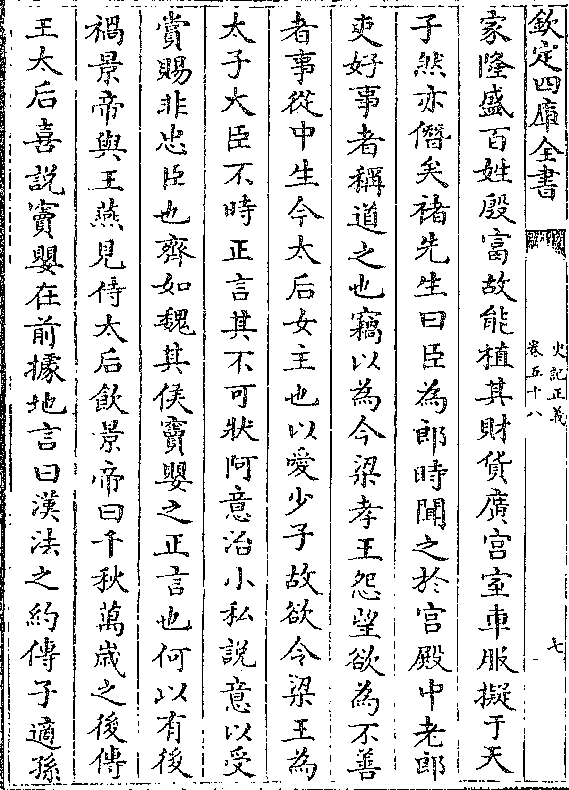 欽定四庫全書
史記正義
卷五十八
七
家隆盛百姓殷富故能植其財貨廣宫室車服擬于天
子然亦僭矣褚先生曰臣為郎時聞之於宫殿中老郎
吏好事者稱道之也竊以為令梁孝王怨望欲為不善
者事從中生今太后女主也以愛少子故欲令梁王為
太子大臣不時正言其不可狀阿意治小私說意以受
賞賜非忠臣也齊如魏其侯竇嬰之正言也何以有後
禍景帝與王燕見侍太后飲景帝曰千秋萬歲之後傳
王太后喜說竇嬰在前據地言曰漢法之約傳子適孫